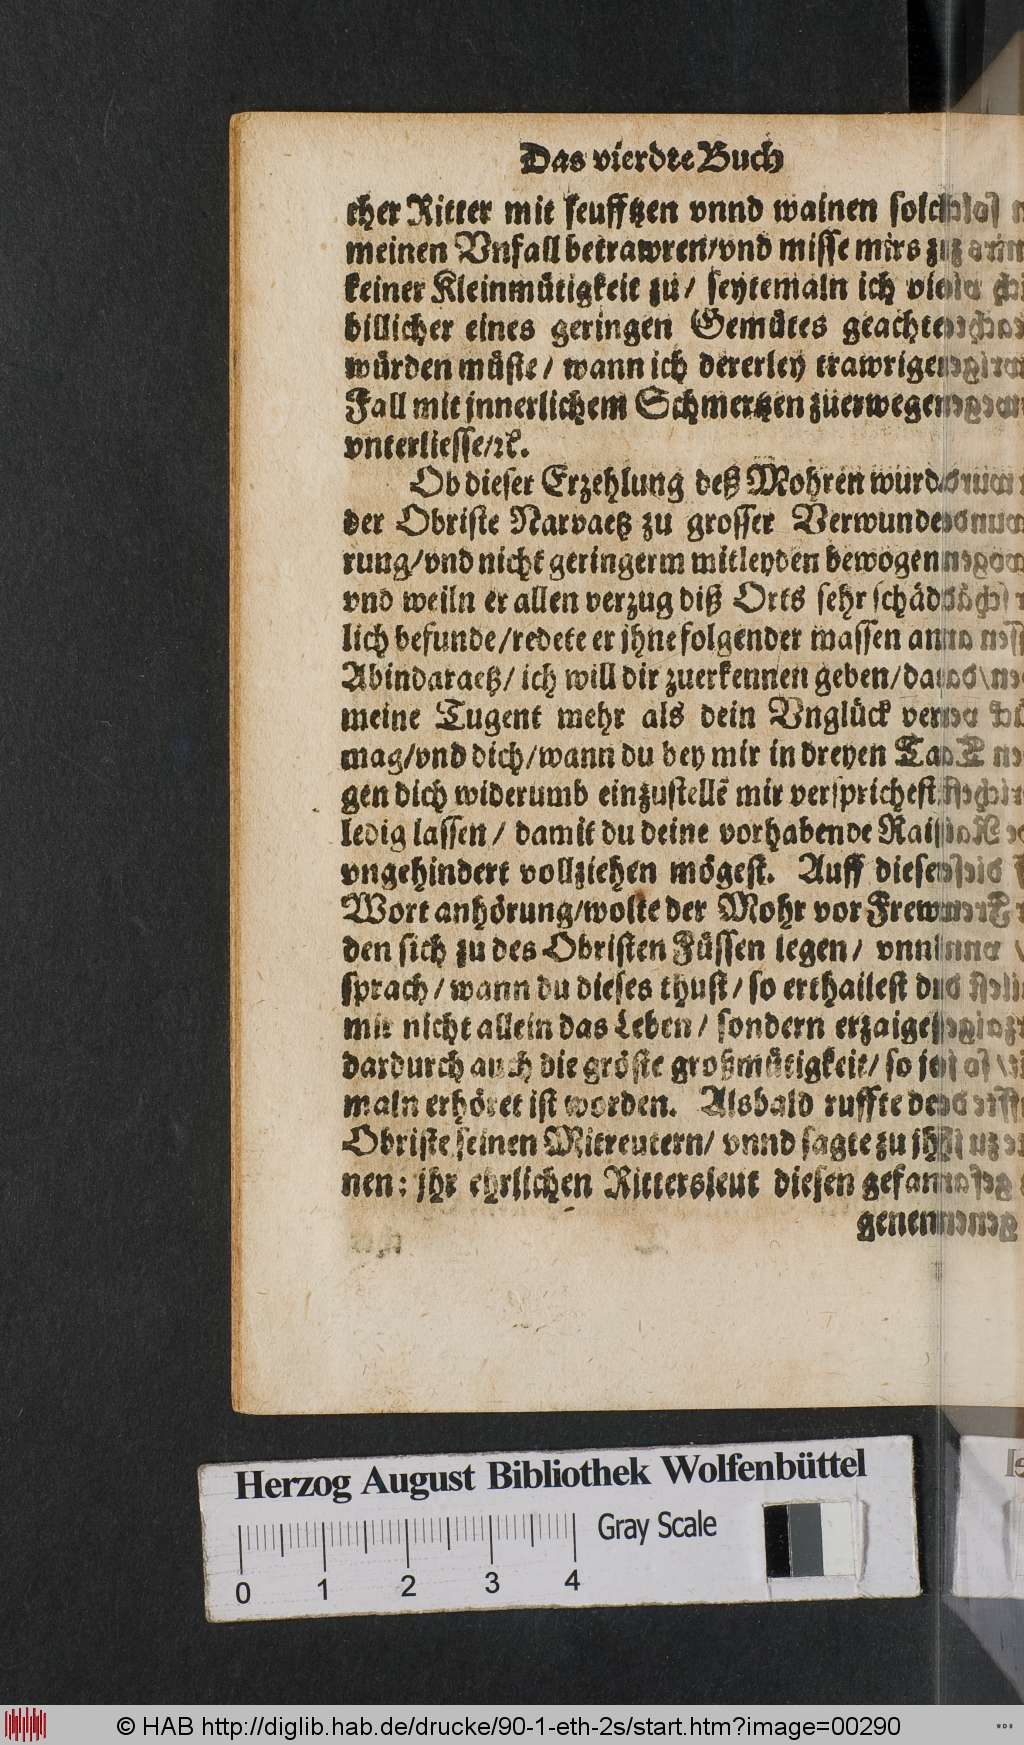 Das vierdte Buch
cher Ritter mit seufftzen vnnd wainen solch
meinen Vnfall betrawren/vnd misse mirs zu
keiner Kleinmütigkeit zu/ seytemaln ich viel
billicher eines geringen Gemütes geachtet
würden müste/ wann ich dererley trawrigen
Fall mit jnnerlichem Schmertzen züerwegen
vnterliesse/ꝛc.
Ob dieser Erzehlung deß Mohren wurd
der Obriste Narvaetz zu grosser Verwunde
rung/vnd nicht geringerm mitleyden bewogen
vnd weiln er allen verzug diß Orts sehr schäd
lich befunde/redete er jhne folgender massen an
Abindaraetz/ ich will dir zuerkennen geben/da
meine Tugent mehr als dein Vnglück ver
mag/vnd dich/wann du bey mir in dreyen Ta
gen dich widerumb einzustellē mir versprichest
ledig lassen/ damit du deine vorhabende Rais
vngehindert vollziehen mögest. Auff diese
Wort anhörung/wolte der Mohr vor Frew
den sich zu des Obristen Füssen legen/ vnn
sprach/wann du dieses thust/so erthailest du
mir nicht allein das Leben/ sondern erzaigest
dardurch auch die gröste großmütigkeit/ so je
maln erhöret ist worden. Alsbald ruffte de
Obriste seinen Mitreutern/ vnnd sagte zu jh
nen: jhr ehrlichen Rittersleut diesen gefan
genen
Herzog August Bibliothek Wolfenbüttel
Gray Scale
0 1 2 3 4
© HAB http://diglib.hab.de/drucke/90-1-eth-2s/start.htm?image=00290